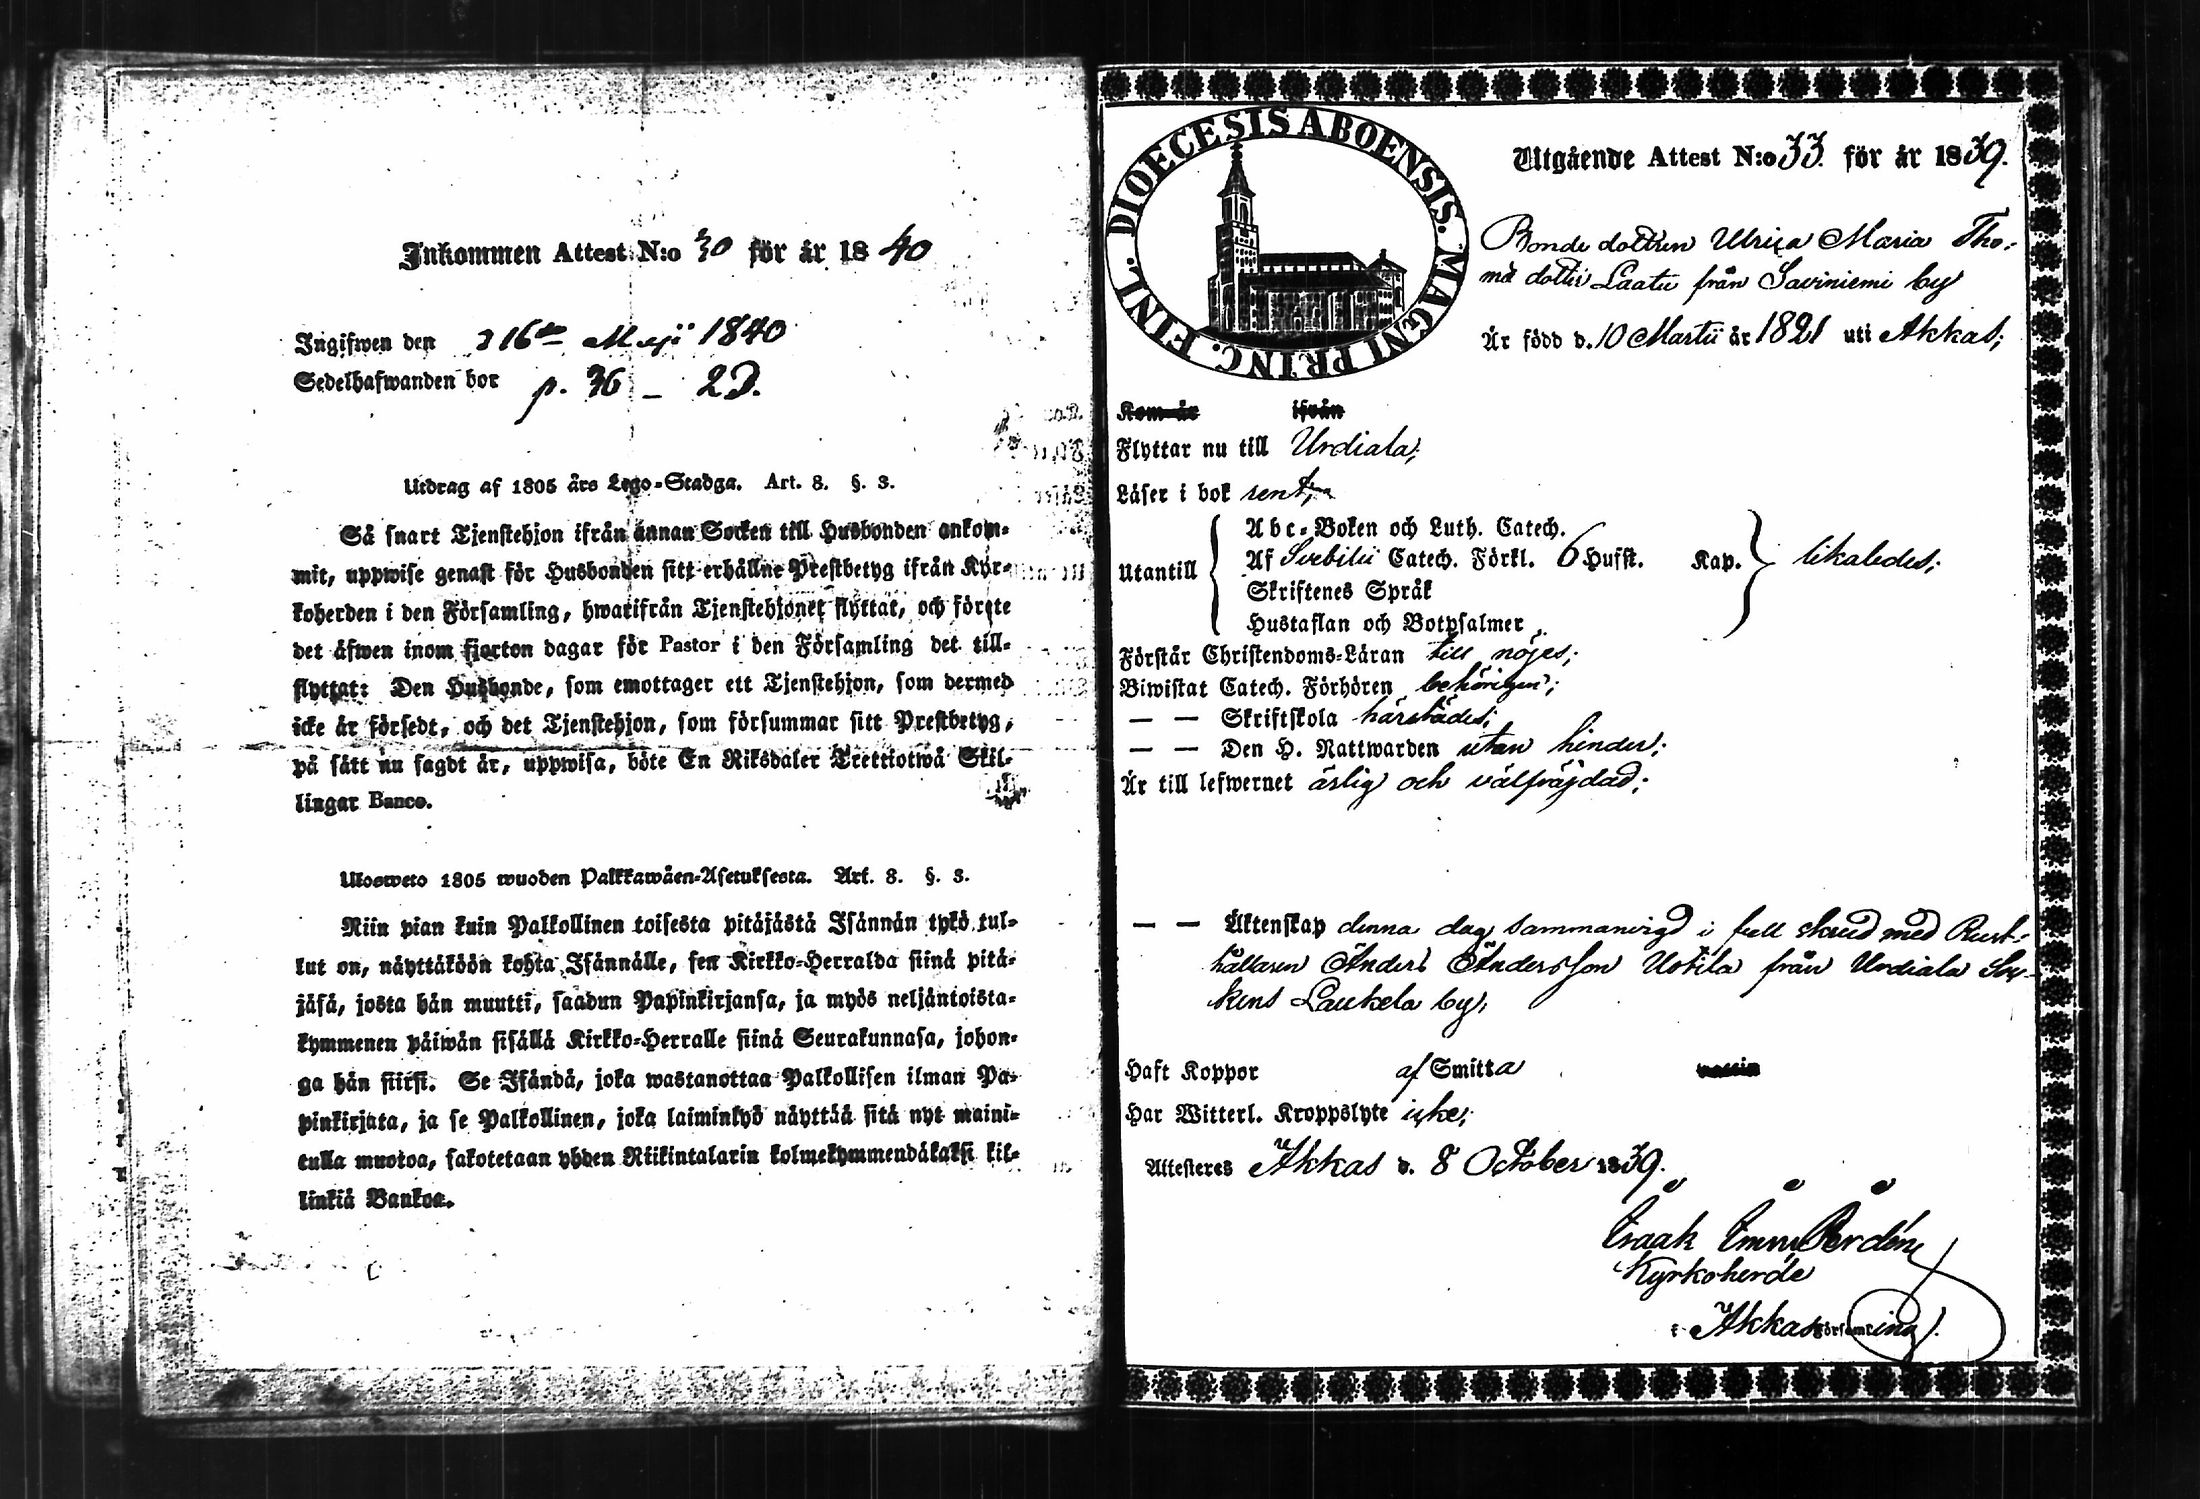 Inkommen Attest N:o 30 för år 1840
Ingifwen den 16de Maji 1840
Sedelhafwanden bor p. 36 – 2D.
Utdrag af 1805 års Lego-Stadga. Art. 8. §. 3.
Så snart Tjenstehjon ifrån annan Socken till Husbonden ankom-
mit, uppwise genast för Husbonden sitt erhållne Prestbetyg ifrån Kyr-
koherden i den Församling, hwarifrån Tjenstehjonet flyttat, och förete
det äfwen inom fjorton dagar för Pastor i den Församling det till-
flyttat: Den Husbonde, som emottager ett Tjenstehjon, som dermed
icke är försedt, och det Tjenstehjon, som försummar sitt Prestbetyg,
på sätt nu sagdt är, uppwisa, böte En Riksdaler Trettiotwå Skil-
lingar Banco.
Ulosweto 1805 wuoden Palkkawäen-Asetuksesta. Art. 8. §. 3.
Niin pian kuin Palkollinen toisesta pitäjästä Isännän tykö tul-
lut on, näyttäköön kohta Isännälle, sen Kirkko-Herralda siinä pitä-
jäsä, josta hän muutti, saadun Papinkirjansa, ja myös neljäntoista-
kymmenen päiwän sisällä Kirkko-Herralle siinä Seurakunnasa, johon-
ga hän siirsi. Se Isändä, joka wastanottaa Palkollisen ilman Pa-
pinkirjata, ja se Palkollinen, joka laiminlyö näyttää sitä nyt maini-
tulla muotoa, sakotetaan yhden Riikintalarin kolmekymmendäkaksi kil-
linkiä Bankoa.
DIOECESIS ABOENSIS. MAGNI PRINC. FINL.
Utgående Attest N:o 33. för år 1839.
Bonde dottren Ulrica Maria Tho-
mä dotter Laatu från Saviniemi by
Är född d. 10 Martii år 1821 uti Akkas;
Kom år ifrån
Flyttar nu till Urdiala;
Läser i bok rent;
Utantill
Abc-Boken och Luth. Catech.
Af Svebilii Catech. Förkl. 6 Hufst. Kap. likaledes;
Skriftenes Språk
Hustaflan och Botpsalmer
Förstår Christendoms-Läran till nöjes;
Biwistat Catech. Förhören behörigen;
— — Skriftskola härstädes;
— — Den H. Nattwarden utan hinder;
Är till lefwernet ärlig och välfräjdad;
— — Äktenskap denna dag sammanvigd i full skrud med Rust-
hållaren Anders Andersson Uotila från Urdiala Soc-
kens Laukela by;
Haft Koppor af Smitta
Har Witterl. Kroppslyte icke;
Attesteres Akkas d. 8 October 1839.
Isaak Imm Pordén
Kyrkoherde
i Akkas Församling.